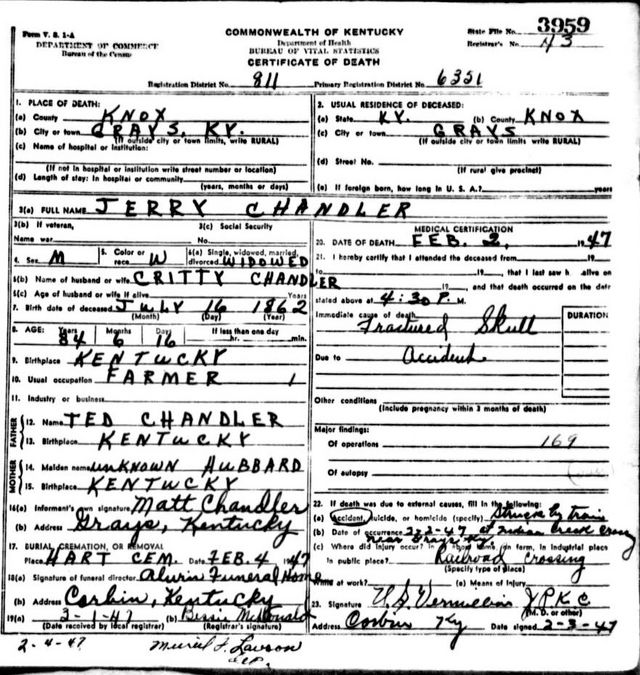 Form V. S. 1-A
DEPARTMENT OF COMMERCE
Bureau of the Census
COMMONWEALTH OF KENTUCKY
Department of Health
BUREAU OF VITAL STATISTICS
CERTIFICATE OF DEATH
State File No. 3959
Registrar's No. 43
Registration District No. 811 Primary Registration District No. 6351
1. PLACE OF DEATH:
(a) County KNOX
(b) City or town GRAYS, KY.
(If outside city or town limits, write RURAL)
(c) Name of hospital or institution:
(If not in hospital or institution write street number or location)
(d) Length of stay: In hospital or community
(years, months or days)
2. USUAL RESIDENCE OF DECEASED:
(a) State KY. (b) County KNOX
(c) City or town GRAYS
(If outside city or town limits write RURAL)
(d) Street No.
(If rural give precinct)
(e) If foreign born, how long in U. S. A.? years
3(a) FULL NAME JERRY CHANDLER
3(b) If veteran,
Name war
3(c) Social Security
No.
4. Sex M
5. Color or
race W
6(a) Single, widowed, married,
divorced WIDOWED
6(b) Name of husband or wife CRITTY CHANDLER
6(c) Age of husband or wife if alive Years
7. Birth date of deceased JULY 16 1862
(Month) (Day) (Year)
8. AGE: Years Months Days If less than one day
84 6 16 hr. min.
9. Birthplace KENTUCKY
10. Usual occupation FARMER 1
11. Industry or business
FATHER
12. Name TED CHANDLER
13. Birthplace KENTUCKY
MOTHER
14. Maiden name UNKNOWN HUBBARD
15. Birthplace KENTUCKY
16(a) Informant's own signature Matt Chandler
(b) Address Grays, Kentucky
17. BURIAL, CREMATION, OR REMOVAL
Place HART CEM. Date FEB. 4 1947
18(a) Signature of funeral director Funeral Home
(b) Address Corbin, Kentucky
19(a) 2-1-47 (b) McDonald
(Date received by local registrar) (Registrar's signature)
2-4-47 Lawson
MEDICAL CERTIFICATION
20. DATE OF DEATH FEB. 2, 1947
21. I hereby certify that I attended the deceased from 19
to 19 , that I last saw h alive on
19 , and that death occurred on the date
stated above at 4:30 P. M.
Immediate cause of death DURATION
Fractured Skull
Due to Accident
Other conditions
(Include pregnancy within 3 months of death)
Major findings:
Of operations 169
Of autopsy
22. If death was due to external causes, fill in the following:
(a) Accident, suicide, or homicide (specify) Struck by train
(b) Date of occurrence 2-2-47 at Indian Creek
near Grays Ky.
(c) Where did injury occur? in farm, in industrial place
In public place? Railroad Crossing
(Specify type of place)
While at work? (e) Means of Injury
23. Signature
(M. D. or other)
Address Corbin Ky Date signed 2-3-47